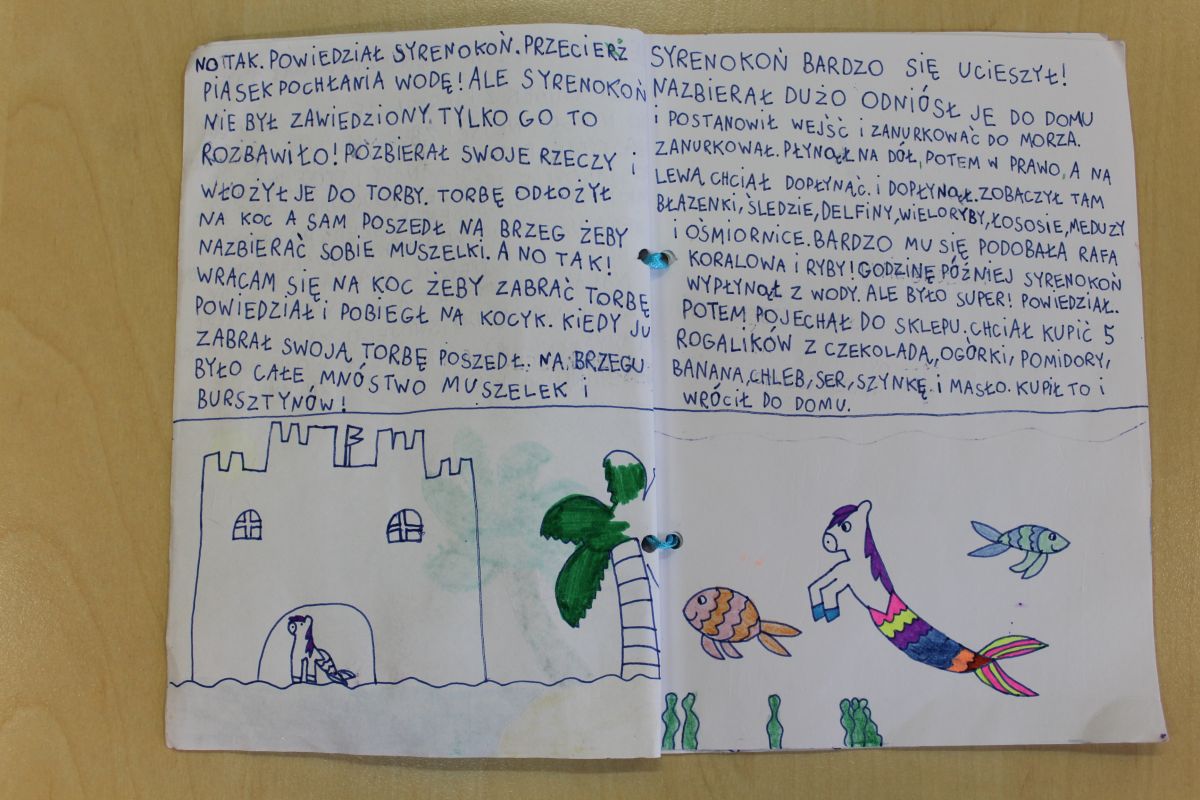 NO TAK. POWIEDZIAŁ SYRENOKOŃ. PRZECIERŻ
PIASEK POCHŁANIA WODĘ! ALE SYRENOKOŃ
NIE BYŁ ZAWIEDZIONY. TYLKO GO TO
ROZBAWIŁO! POZBIERAŁ SWOJE RZECZY I
WŁOŻYŁ JE DO TORBY. TORBĘ ODŁOŻYŁ
NA KOC A SAM POSZEDŁ NA BRZEG ŻEBY
NAZBIERAĆ SOBIE MUSZELKI. A NO TAK!
WRACAM SIĘ NA KOC ŻEBY ZABRAĆ TORBĘ
POWIEDZIAŁ I POBIEGŁ NA KOCYK. KIEDY JU
ZABRAŁ SWOJĄ TORBĘ POSZEDŁ. NA BRZEGU
BYŁO CAŁE, MNÓSTWO MUSZELEK I
BURSZTYNÓW!
SYRENOKOŃ BARDZO SIĘ UCIESZYŁ!
NAZBIERAŁ DUŻO ODNIÓSŁ JE DO DOMU
I POSTANOWIŁ WEJŚĆ I ZANURKOWAĆ DO MORZA.
ZANURKOWAŁ. PŁYNĄŁ NA DÓŁ, POTEM W PRAWO, A NA
LEWĄ CHCIAŁ DOPŁYNĄĆ. I DOPŁYNĄŁ. ZOBACZYŁ TAM
BŁAZENKI, ŚLEDZIE, DELFINY, WIELORYBY, ŁOSOSIE, MEDUZY
I OŚMIORNICE. BARDZO MU SIĘ PODOBAŁA RAFA
KORALOWA I RYBY! GODZINĘ PÓŹNIEJ SYRENOKOŃ
WYPŁYNĄŁ Z WODY. ALE BYŁO SUPER! POWIEDZIAŁ.
POTEM POJECHAŁ DO SKLEPU. CHCIAŁ KUPIĆ 5
ROGALIKÓW Z CZEKOLADĄ, OGÓRKI, POMIDORY,
BANANA, CHLEB, SER, SZYNKĘ I MASŁO. KUPIŁ TO I
WRÓCIŁ DO DOMU.